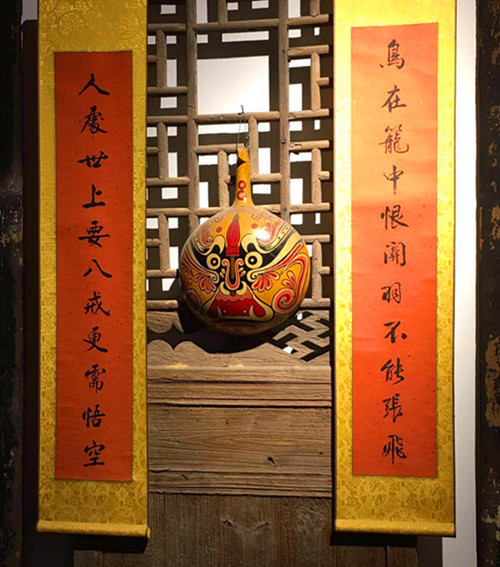 鳥在籠中恨關羽不能張飛
人處世上要八戒更需悟空